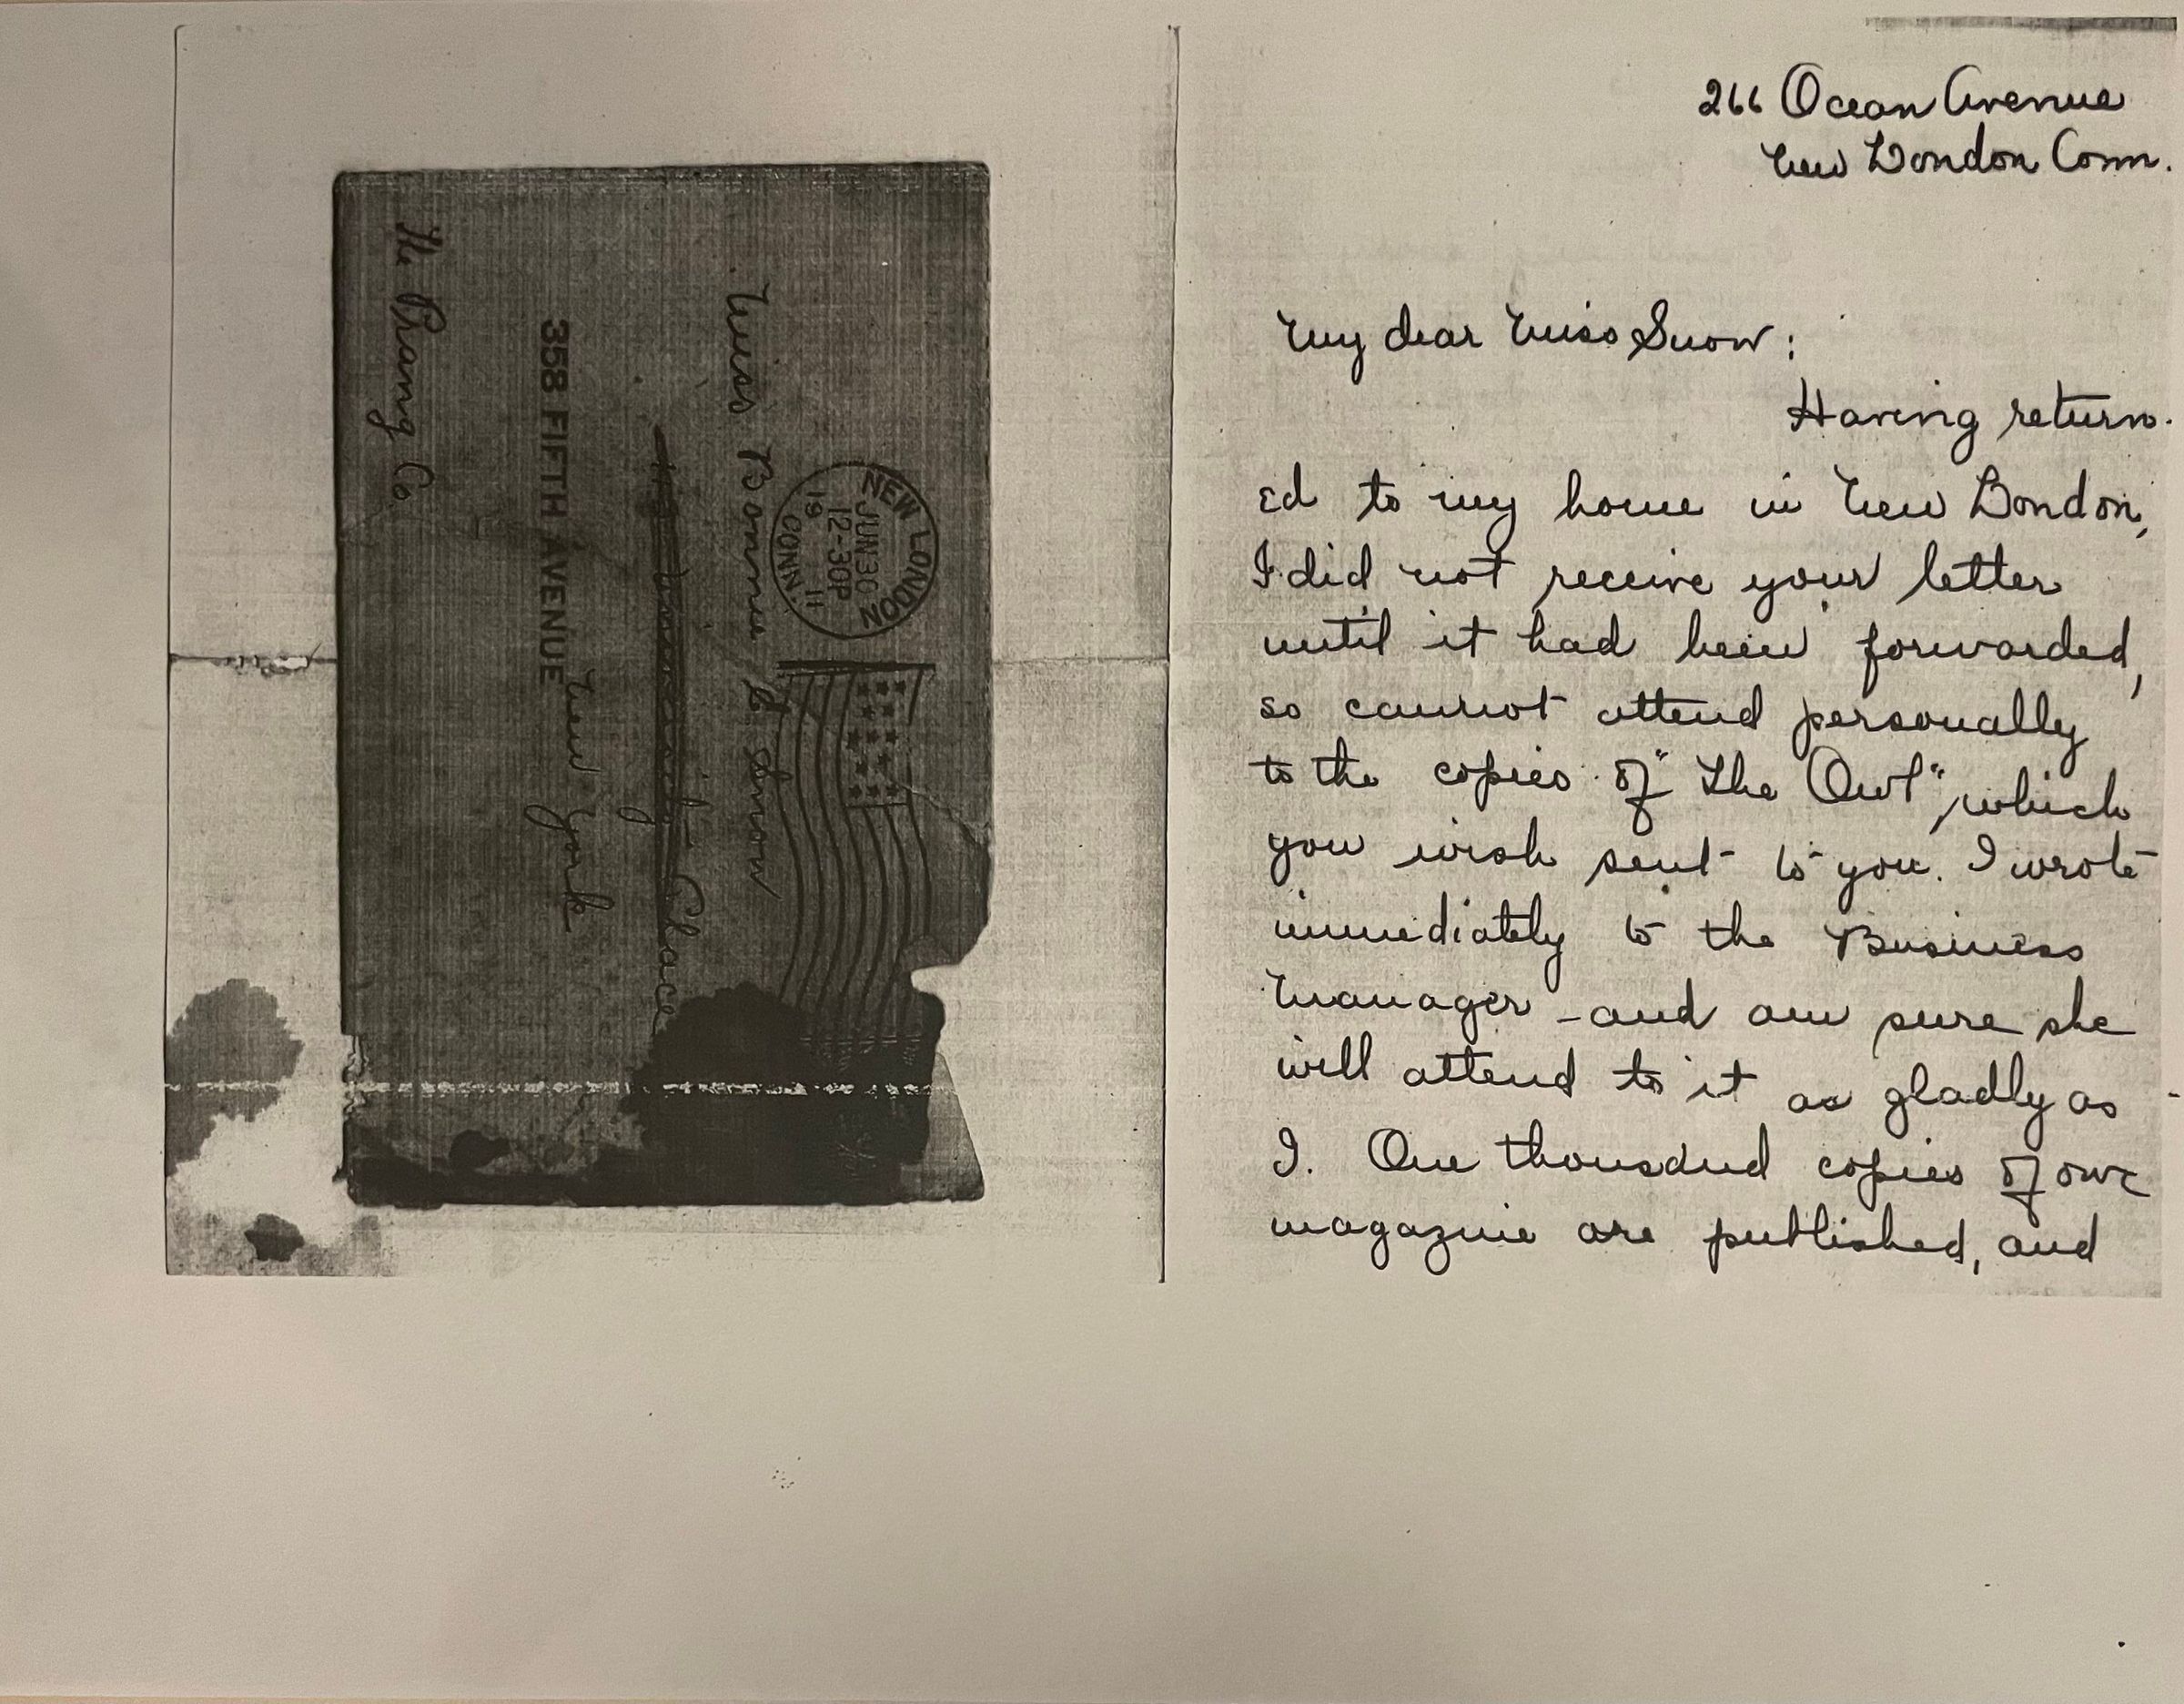 NEW LONDON
JUN 30
12-30P
19 11
CONN.
Miss Bonnie E. Snow
University Place
358 FIFTH AVENUE
New York
The Prang Co.
266 Ocean Avenue
New London Conn.
My dear Miss Snow:
Having return-
ed to my home in New London,
I did not receive your letter
until it had been forwarded,
so cannot attend personally
to the copies of "The Owl", which
you wish sent to you. I wrote
immediately to the Business
Manager - and am sure she
will attend to it as gladly as
I. One thousand copies of our
magazine are published, and